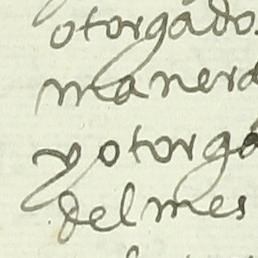 otorgado
manera
y otorga
del mes